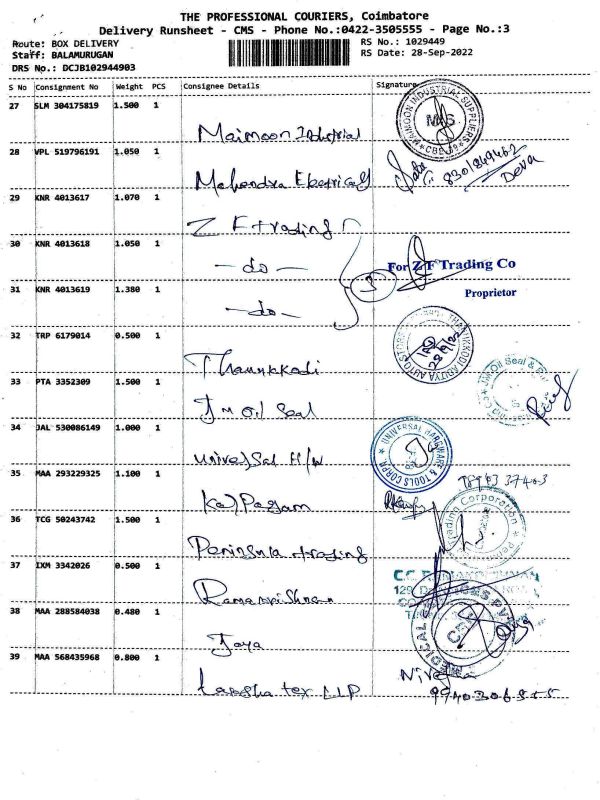 THE PROFESSIONAL COURIERS, Coimbatore
Delivery Runsheet - CMS - Phone No.:0422-3505555 - Page No.:3
Route: BOX DELIVERY RS No.: 1029449
Staff: BALAMURUGAN RS Date: 28-Sep-2022
DRS No.: DCJB102944903
S No Consignment No Weight PCS Consignee Details Signature
27 SLM 304175819 1.500 1
Maimoon Industrial
MAIMOON INDUSTRIAL SUPPLIERS
28 VPL 519796191 1.050 1
Mahendra Electricals
Deva
29 KNR 4013617 1.070 1
Z F trading
30 KNR 4013618 1.050 1
- do -
3
For Z F Trading Co
Proprietor
31 KNR 4013619 1.380 1
- do -
32 TRP 6179014 0.500 1
THANIKKODI ADITYA AUTOSTORES
33 PTA 3352309 1.500 1
J m oil Seal
Oil Seal &
34 JAL 530086149 1.000 1
Universal H/W
UNIVERSAL HARDWARE & TOOLS CORPN
35 MAA 293229325 1.100 1
36 TCG 50243742 1.500 1
Peninsula trading
Trading Corporation
37 IXM 3342026 0.500 1
Ramakrishnan
38 MAA 288584038 0.480 1
Jaya
MEDICAL
39 MAA 568435968 0.800 1
tex LLP